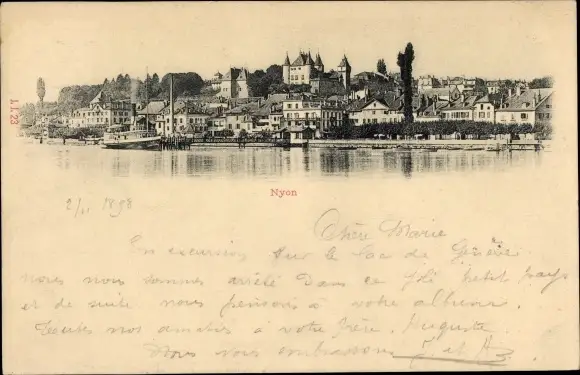 11.23
Nyon
2/11 1898
Chère Marie
En excursion sur le Lac de Genève
nous nous sommes arrêté dans ce joli petit pays
et de suite nous pensons à votre album.
Toutes nos amitiés à votre frère Auguste
Nous vous embrassons J. et A.